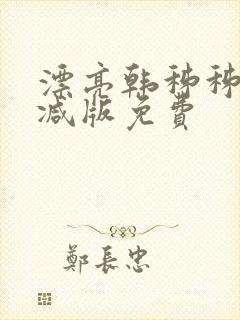 漂亮韩秭秭
减版免費
鄭長忠